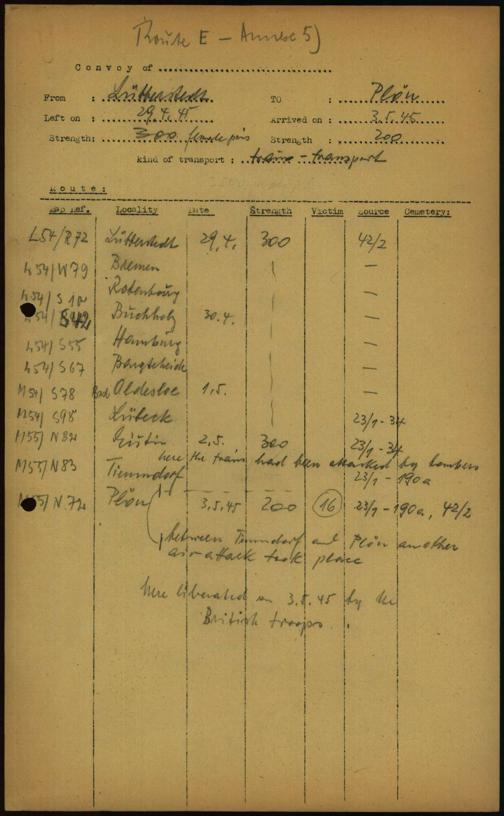 Route E - Annexe 5)
Convoy of
From : Lütterstedt TO : Plön
Left on : 29.4.45 Arrived on : 3.5.45
Strength: 300 Strength : 200
kind of transport : train - transport
Route:
Map Ref. Locality Date Strength Victim Source Cemetery:
L54/R72 Lütterstedt 29.4. 300 42/2
L54/W79 Bremen —
L54/S10 Rotenburg —
L54/S42 Buchholz 30.4. —
L54/S55 Hamburg —
L54/S67 Bargteheide —
M54/S78 Bad Oldesloe 1.5. —
M54/S98 Lübeck 23/1-34
M55/N84 Eutin 2.5. 300 23/1-34
here the train had been attacked by bombers
M55/N83 Timmdorf 23/1-190a
M55/N72 Plön 3.5.45 200 16 23/1-190a, 42/2
between Timmdorf and Plön another
air attack took place
here liberated on 3.5.45 by the
British troops.